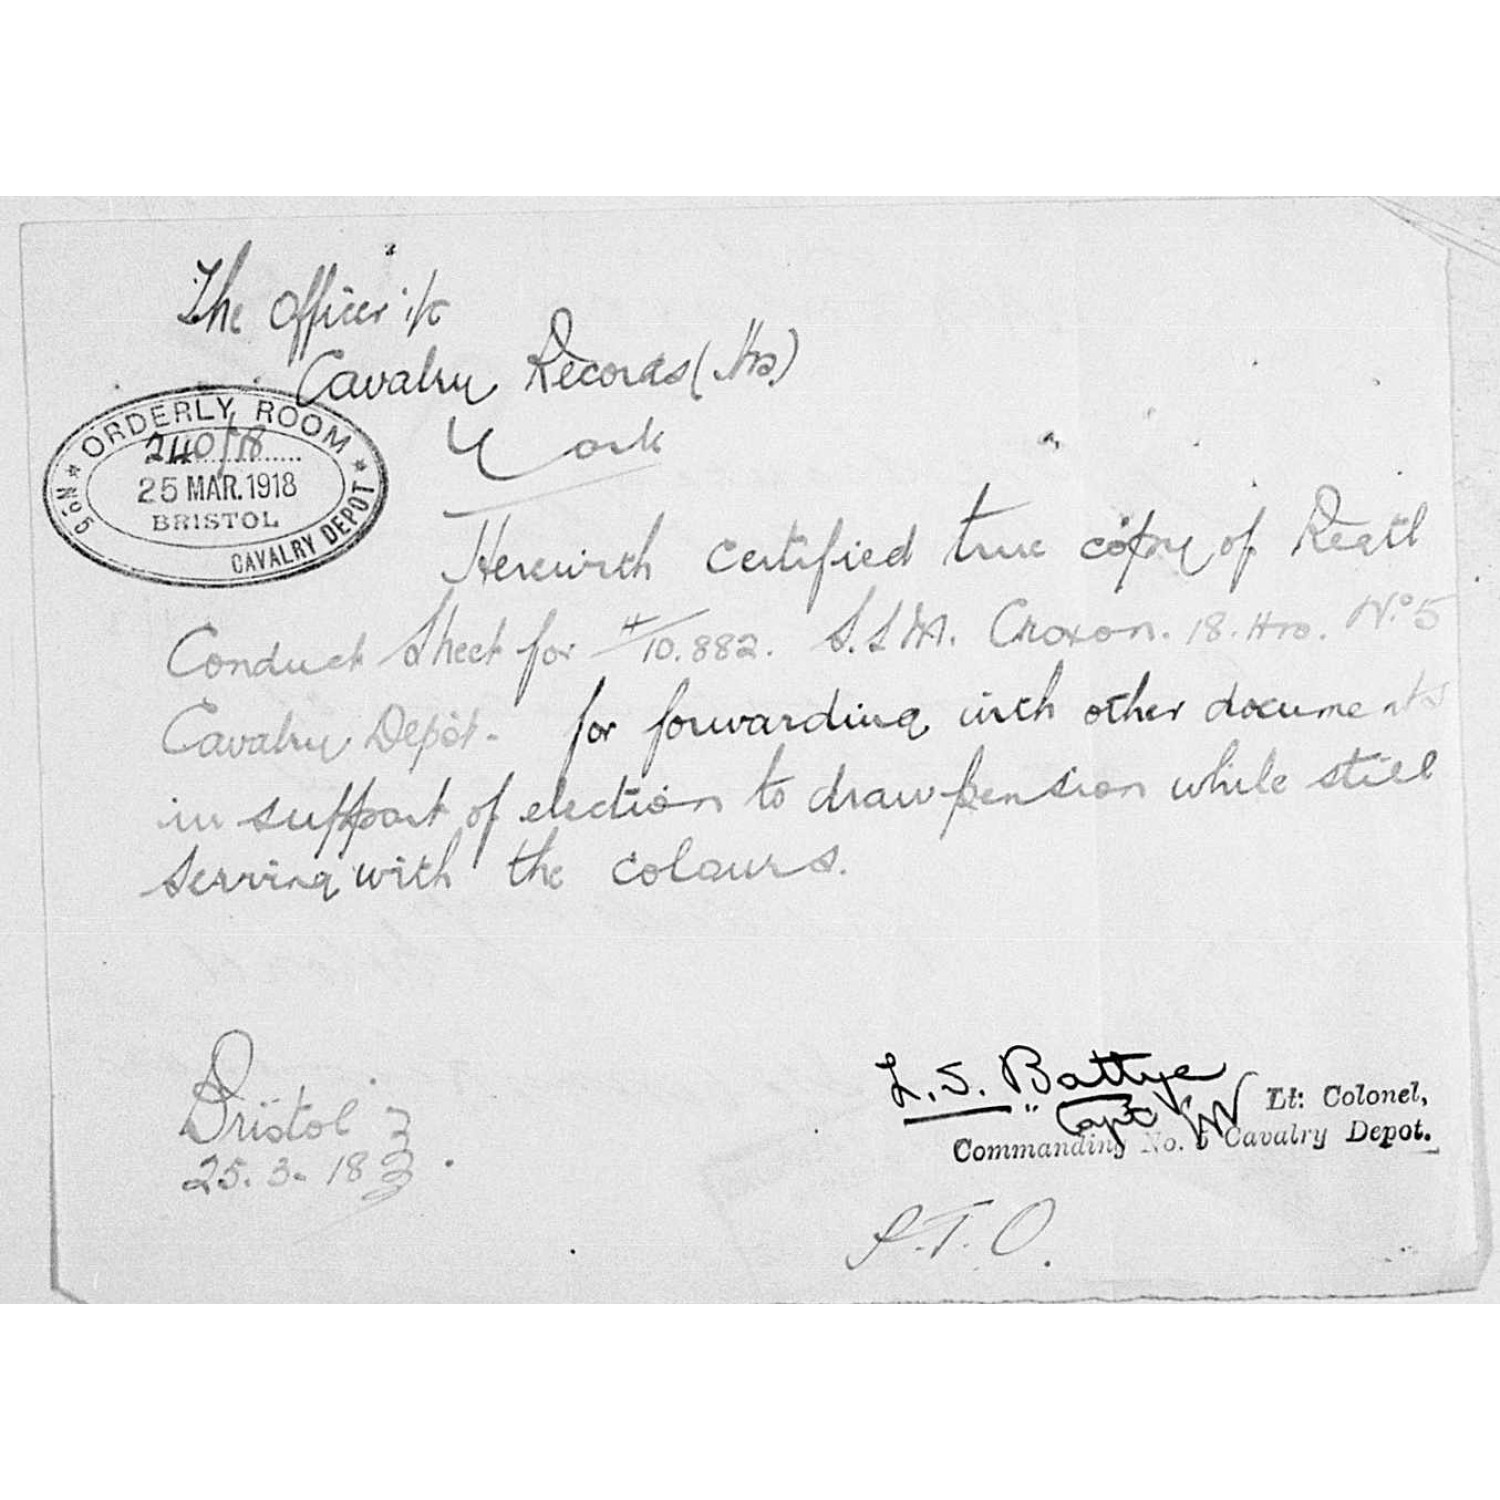 The Officer i/c
Cavalry Records (Hrs.)
York
ORDERLY ROOM
240/18
25 MAR. 1918
BRISTOL
No 5 CAVALRY DEPOT
Herewith certified true copy of Regtl
Conduct Sheet for H/10.882. S.S.M. Croxon. 18. Hrs. No. 5
Cavalry Depôt - for forwarding with other documents
in support of election to draw pension while still
serving with the colours.
Bristol
25. 3. 18
L. S. Battye
Capt Lt: Colonel,
Commanding No. 5 Cavalry Depot.
P.T.O.